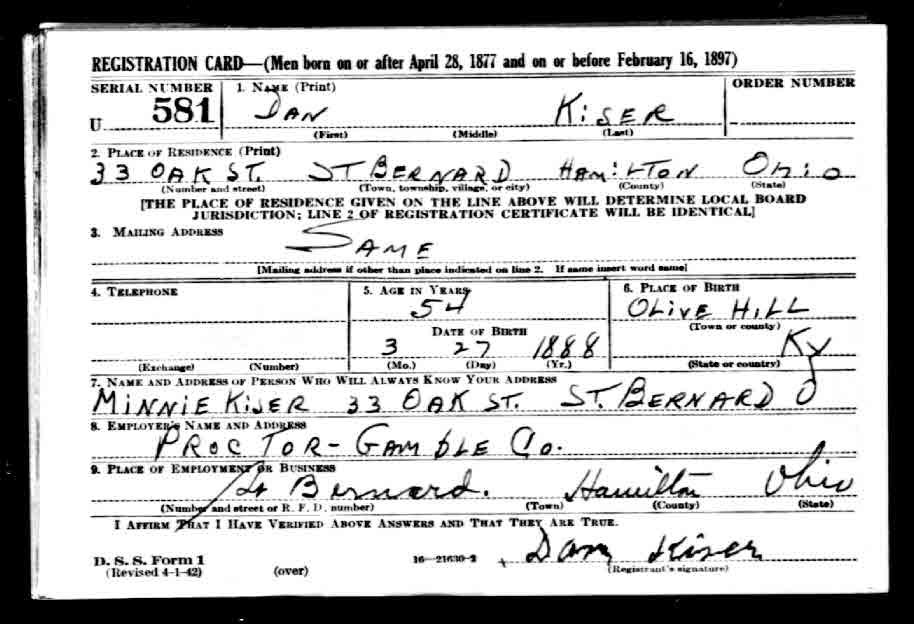 REGISTRATION CARD—(Men born on or after April 28, 1877 and on or before February 16, 1897)
SERIAL NUMBER 1. NAME (Print) ORDER NUMBER
U 581 DAN KiSER
(First) (Middle) (Last)
2. PLACE OF RESIDENCE (Print)
33 OAK ST. ST BERNARD HAMiLTON OHiO
(Number and street) (Town, township, village, or city) (County) (State)
[THE PLACE OF RESIDENCE GIVEN ON THE LINE ABOVE WILL DETERMINE LOCAL BOARD
JURISDICTION; LINE 2 OF REGISTRATION CERTIFICATE WILL BE IDENTICAL]
3. MAILING ADDRESS
SAME
[Mailing address if other than place indicated on line 2. If same insert word same]
4. TELEPHONE 5. AGE IN YEARS 6. PLACE OF BIRTH
54 OLIVE HILL
(Town or county)
DATE OF BIRTH
3 27 1888 Ky
(Exchange) (Number) (Mo.) (Day) (Yr.) (State or country)
7. NAME AND ADDRESS OF PERSON WHO WILL ALWAYS KNOW YOUR ADDRESS
MINNIE KISER 33 OAK ST. ST. BERNARD O
8. EMPLOYER'S NAME AND ADDRESS
PROCTOR-GAMbLE Co.
9. PLACE OF EMPLOYMENT OR BUSINESS
St Bernard. Hamilton Ohio
(Number and street or R. F. D. number) (Town) (County) (State)
I AFFIRM THAT I HAVE VERIFIED ABOVE ANSWERS AND THAT THEY ARE TRUE.
D. S. S. Form 1 16—21630-2 Dan Kiser
(Revised 4-1-42) (over) (Registrant's signature)